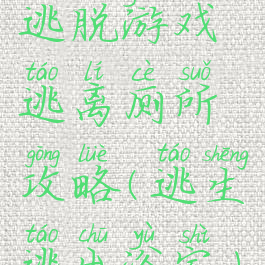 逃脱游戏
táo lí cè suǒ
逃离厕所
gōng lüè táo shēng
攻略(逃生
táo chū yù shì
逃出浴室)